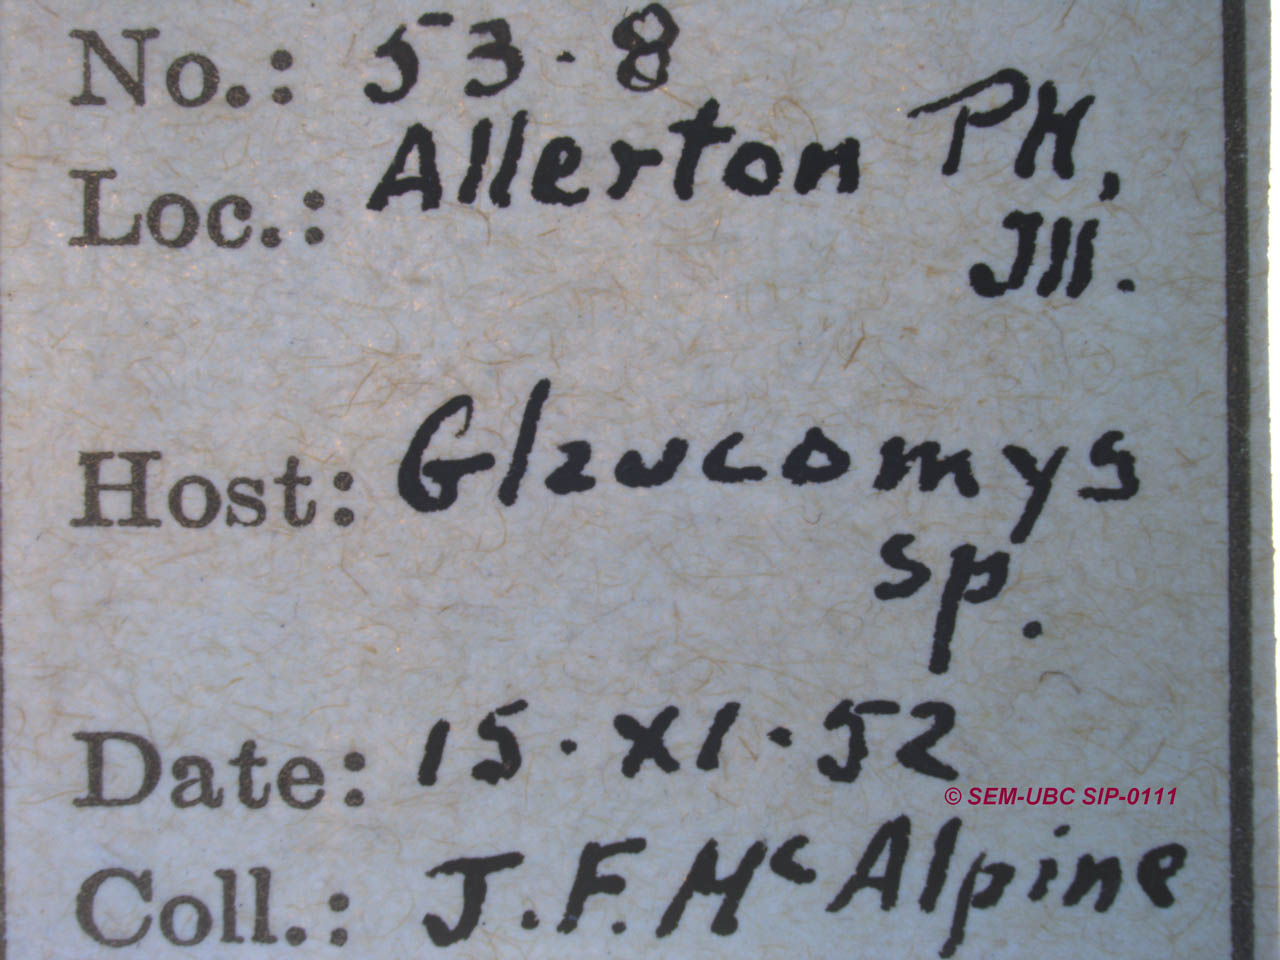 No.: 53·8
Loc.: Allerton PK,
Ill.
Host: Glaucomys
sp.
Date: 15·XI·52
© SEM-UBC SIP-0111
Coll.: J.F. McAlpine